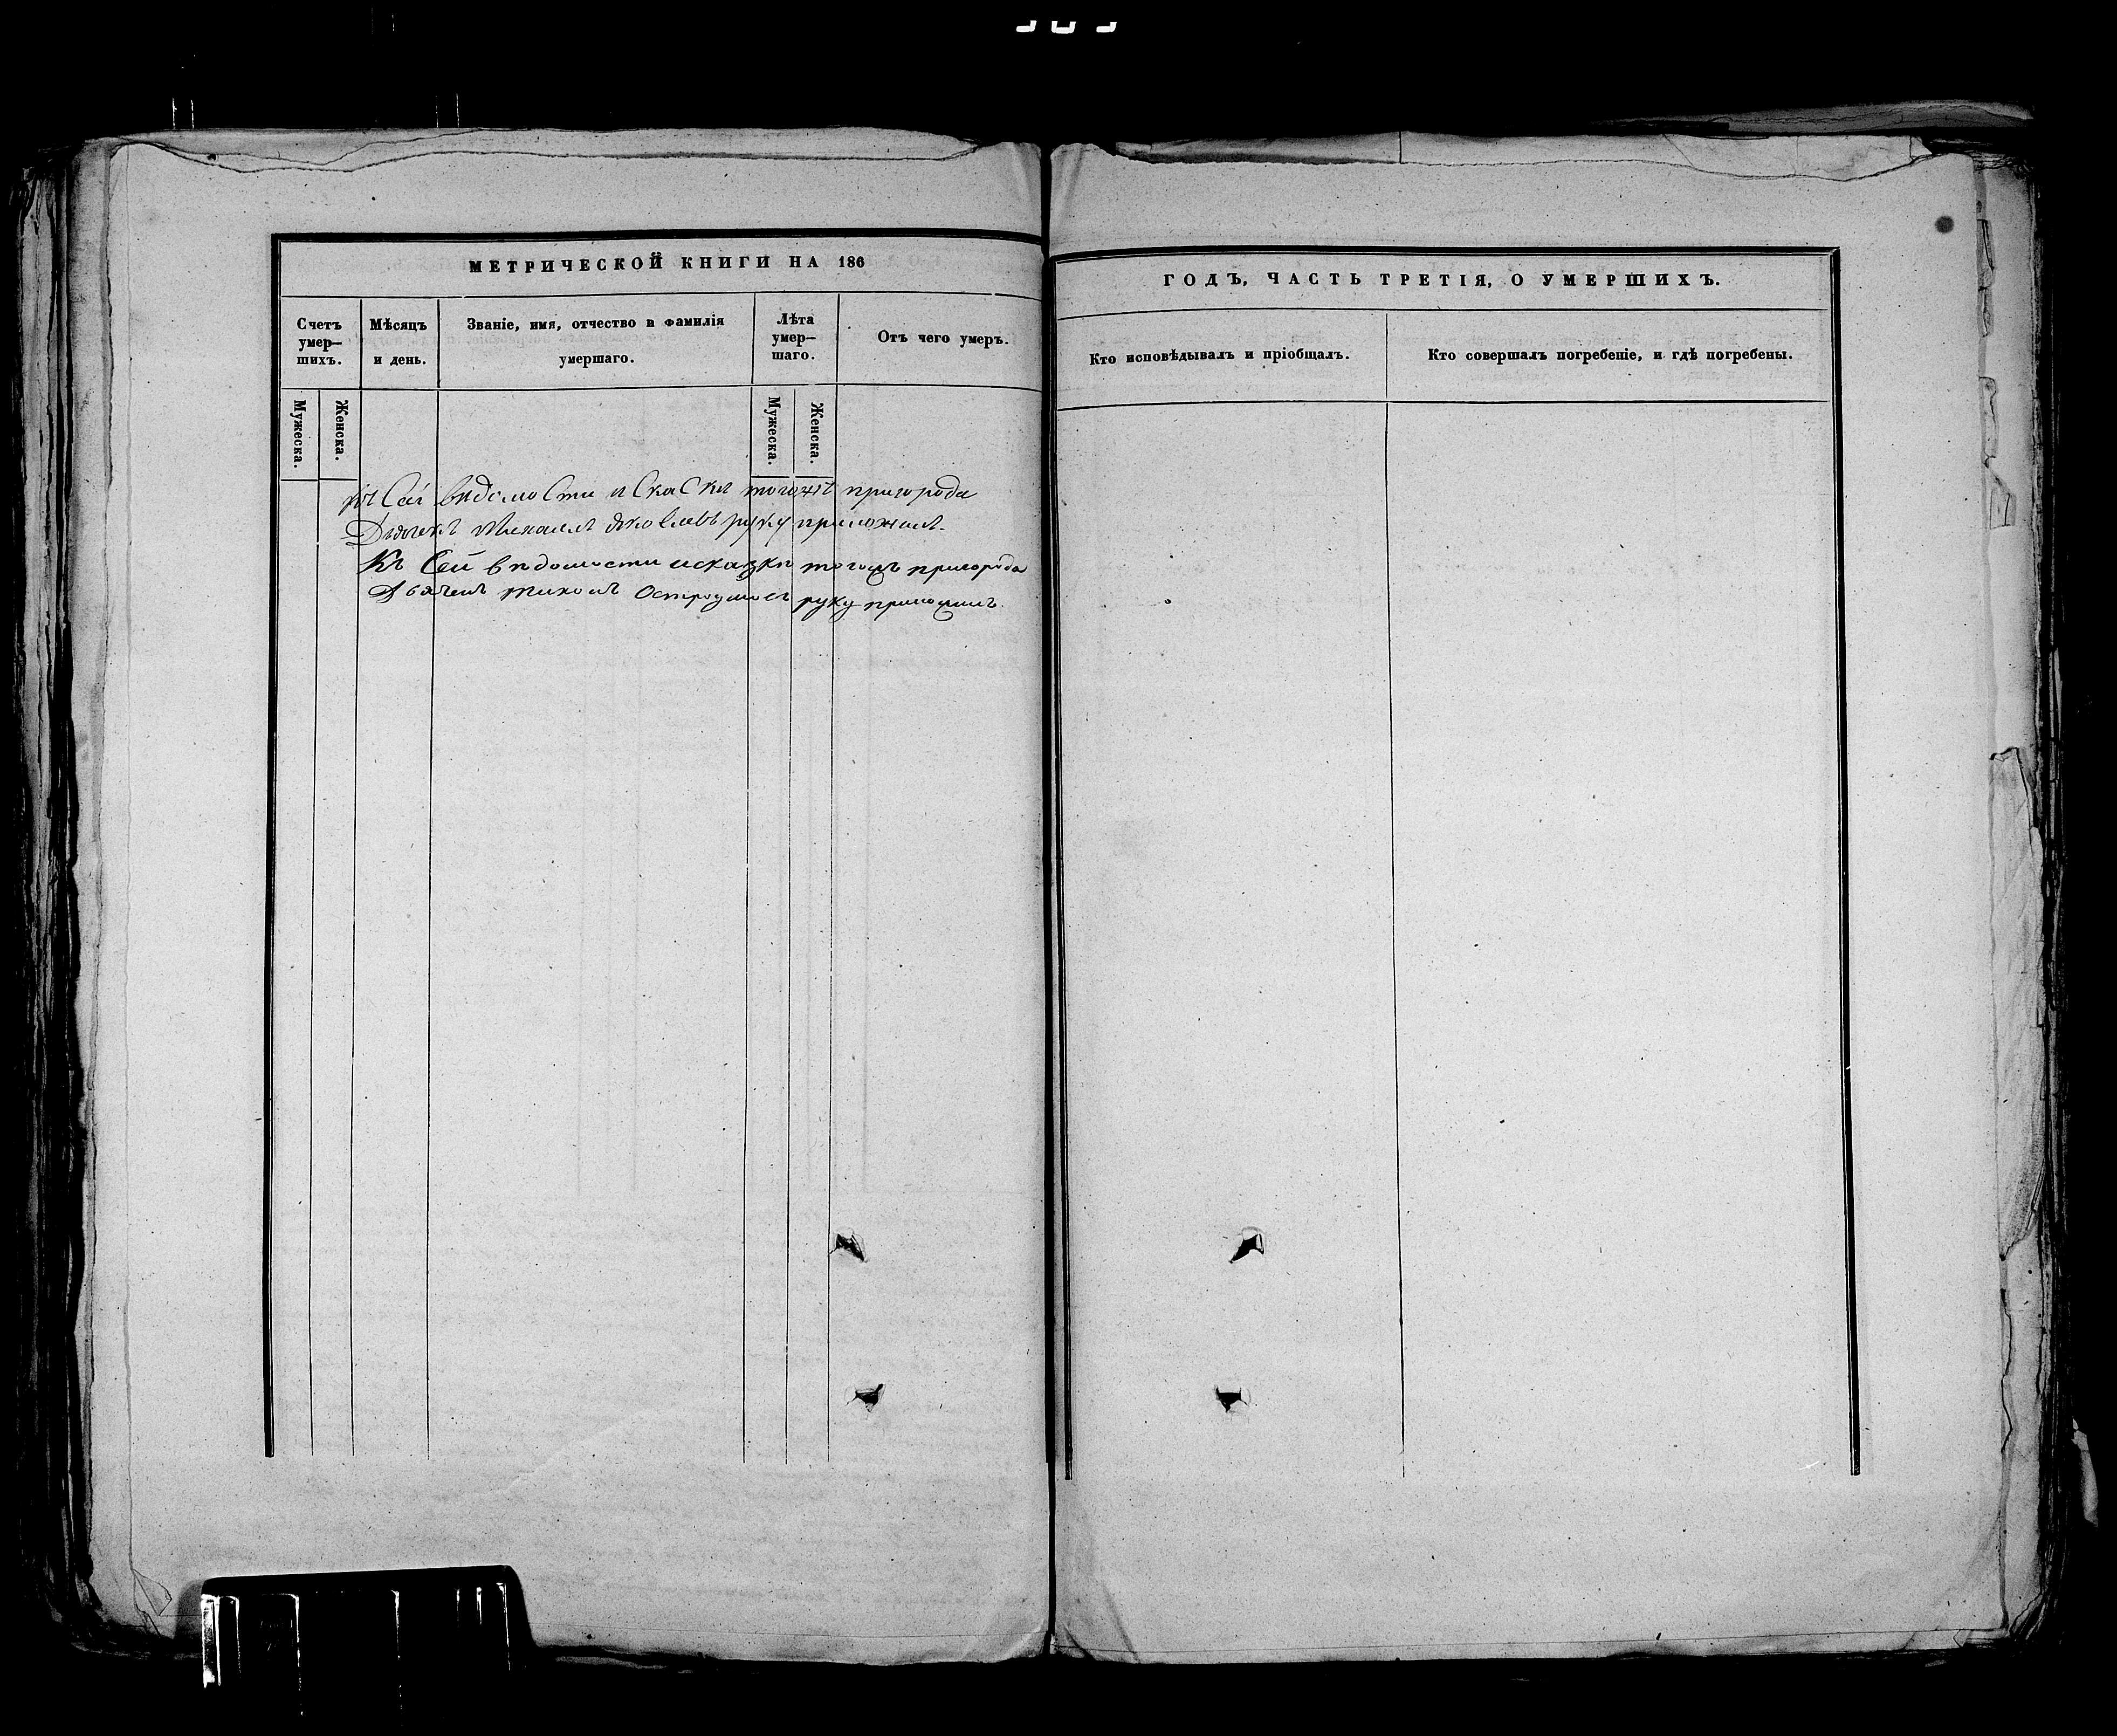 МЕТРИЧЕСКОЙ КНИГИ НА 186
Счетъ умер–шихъ.
Мѣсяцъ и день.
Званіе, имя, отчество и фамилія умершаго.
Лѣта умер–шаго.
Отъ чего умеръ.
Мужеска.
Женска.
Мужеска.
Женска.
къ Сей вѣдомости и Скаски тогожъ пригорода
Дьячекъ Михаилъ Яковлевъ руку приложилъ.
Къ Сей вѣдомости и сказки тогожъ пригорода
Дьячекъ Тихонъ Остроумовъ руку приложилъ.
ГОДЪ, ЧАСТЬ ТРЕТІЯ, О УМЕРШИХЪ.
Кто исповѣдывалъ и пріобщалъ.
Кто совершалъ погребеніе, и гдѣ погребены.